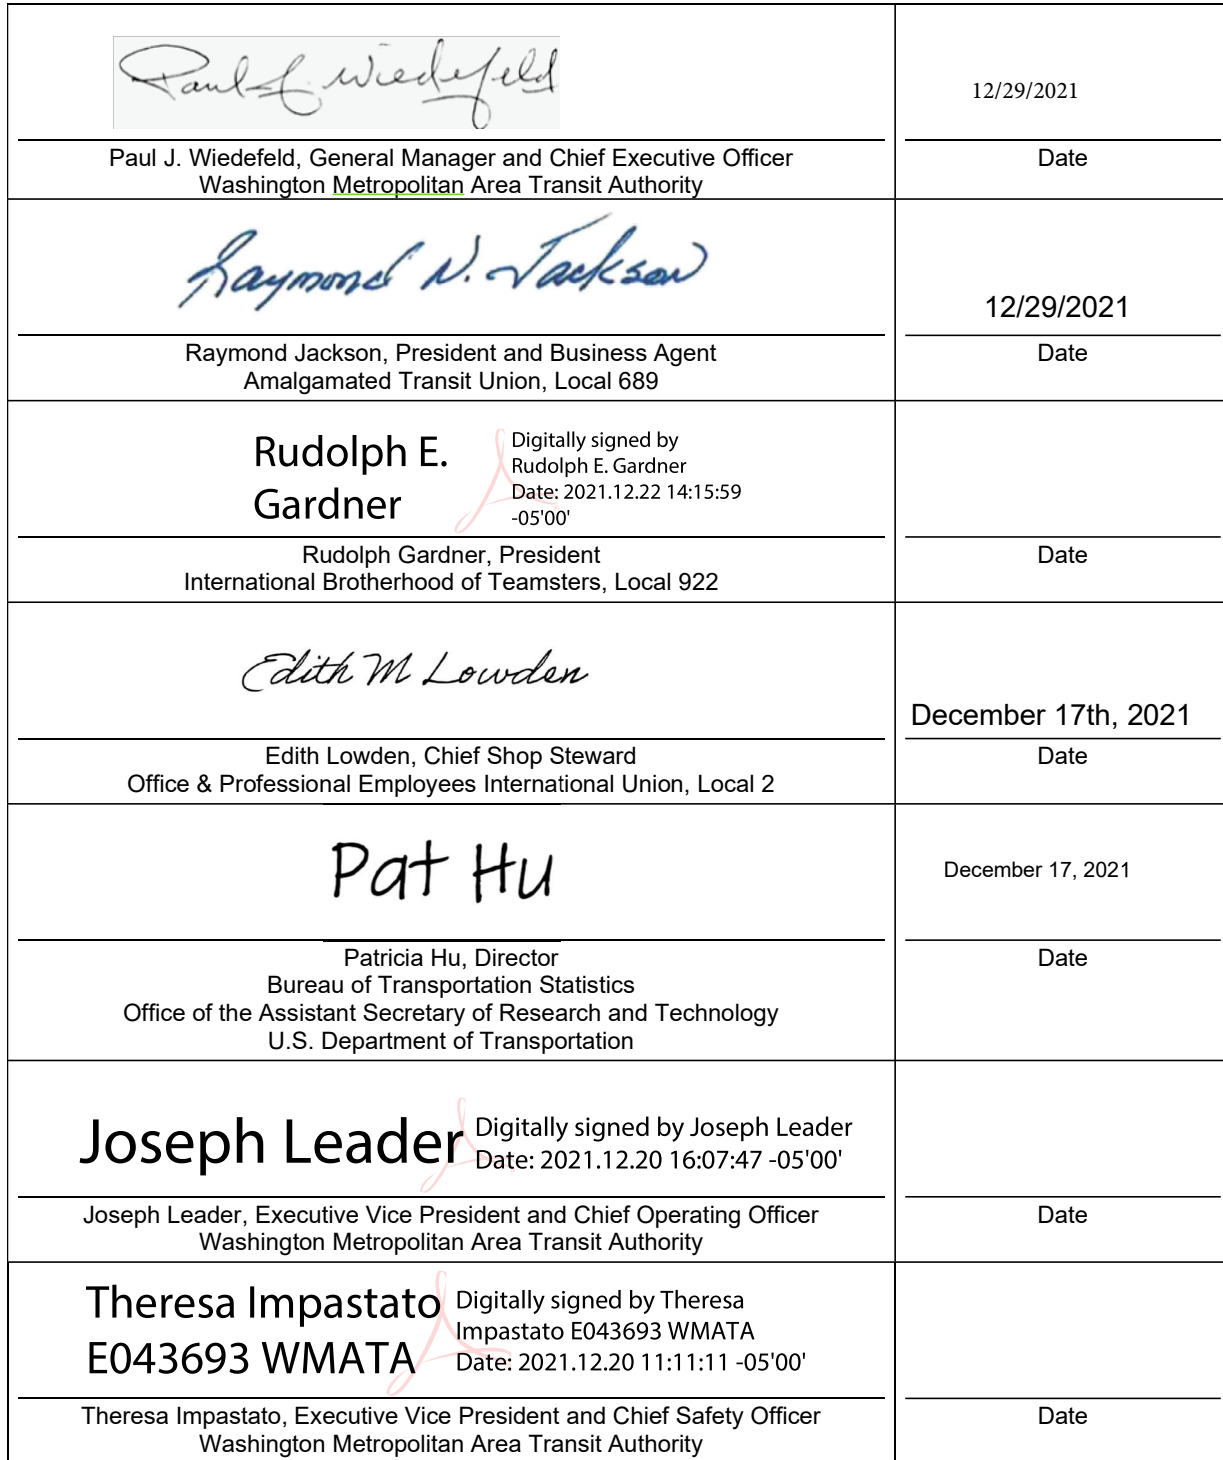 Paul J. Wiedefeld
12/29/2021
Paul J. Wiedefeld, General Manager and Chief Executive Officer
Washington Metropolitan Area Transit Authority
Date
Raymond N. Jackson
12/29/2021
Raymond Jackson, President and Business Agent
Amalgamated Transit Union, Local 689
Date
Rudolph E.
Gardner
Digitally signed by
Rudolph E. Gardner
Date: 2021.12.22 14:15:59
-05'00'
Rudolph Gardner, President
International Brotherhood of Teamsters, Local 922
Date
Edith M Lowden
December 17th, 2021
Edith Lowden, Chief Shop Steward
Office & Professional Employees International Union, Local 2
Date
Pat Hu
December 17, 2021
Patricia Hu, Director
Bureau of Transportation Statistics
Office of the Assistant Secretary of Research and Technology
U.S. Department of Transportation
Date
Joseph Leader
Digitally signed by Joseph Leader
Date: 2021.12.20 16:07:47 -05'00'
Joseph Leader, Executive Vice President and Chief Operating Officer
Washington Metropolitan Area Transit Authority
Date
Theresa Impastato
E043693 WMATA
Digitally signed by Theresa
Impastato E043693 WMATA
Date: 2021.12.20 11:11:11 -05'00'
Theresa Impastato, Executive Vice President and Chief Safety Officer
Washington Metropolitan Area Transit Authority
Date